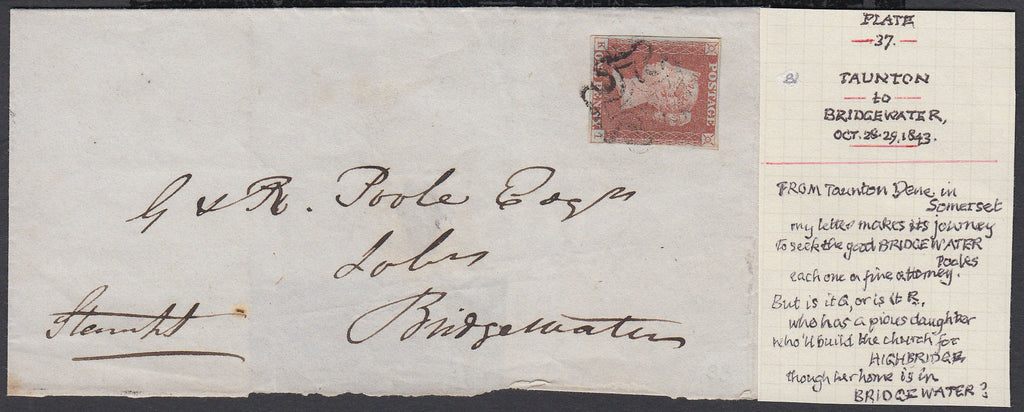 G & R. Poole Esqrs
Solrs
Bridgewater
Stamped
POSTAGE
PLATE
37.
TAUNTON
to
BRIDGEWATER,
OCT. 28-29, 1843.
FROM Taunton Dene, in
Somerset
my letter makes its journey
To seek the good BRIDGEWATER
Pooles
each one a fine attorney.
But is it G, or is it R,
who has a pious daughter
who'll build the church for
HIGHBRIDGE
though her home is in
BRIDGEWATER?